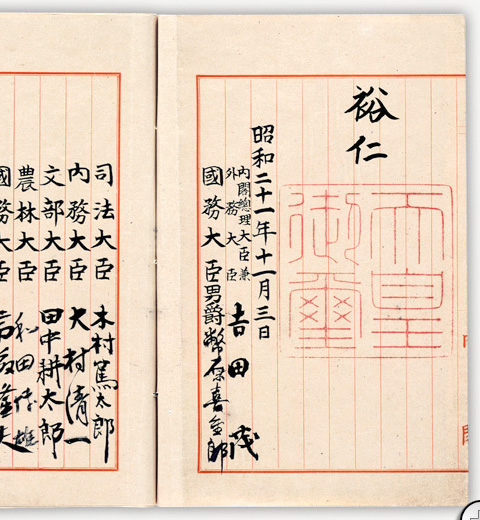 裕仁
天皇
御璽
昭和二十一年十一月三日
内閣總理大臣兼
外務大臣 吉田茂
國務大臣男爵幣原喜重郎
司法大臣 木村篤太郎
内務大臣 大村清一
文部大臣 田中耕太郎
農林大臣 和田博雄
國務大臣